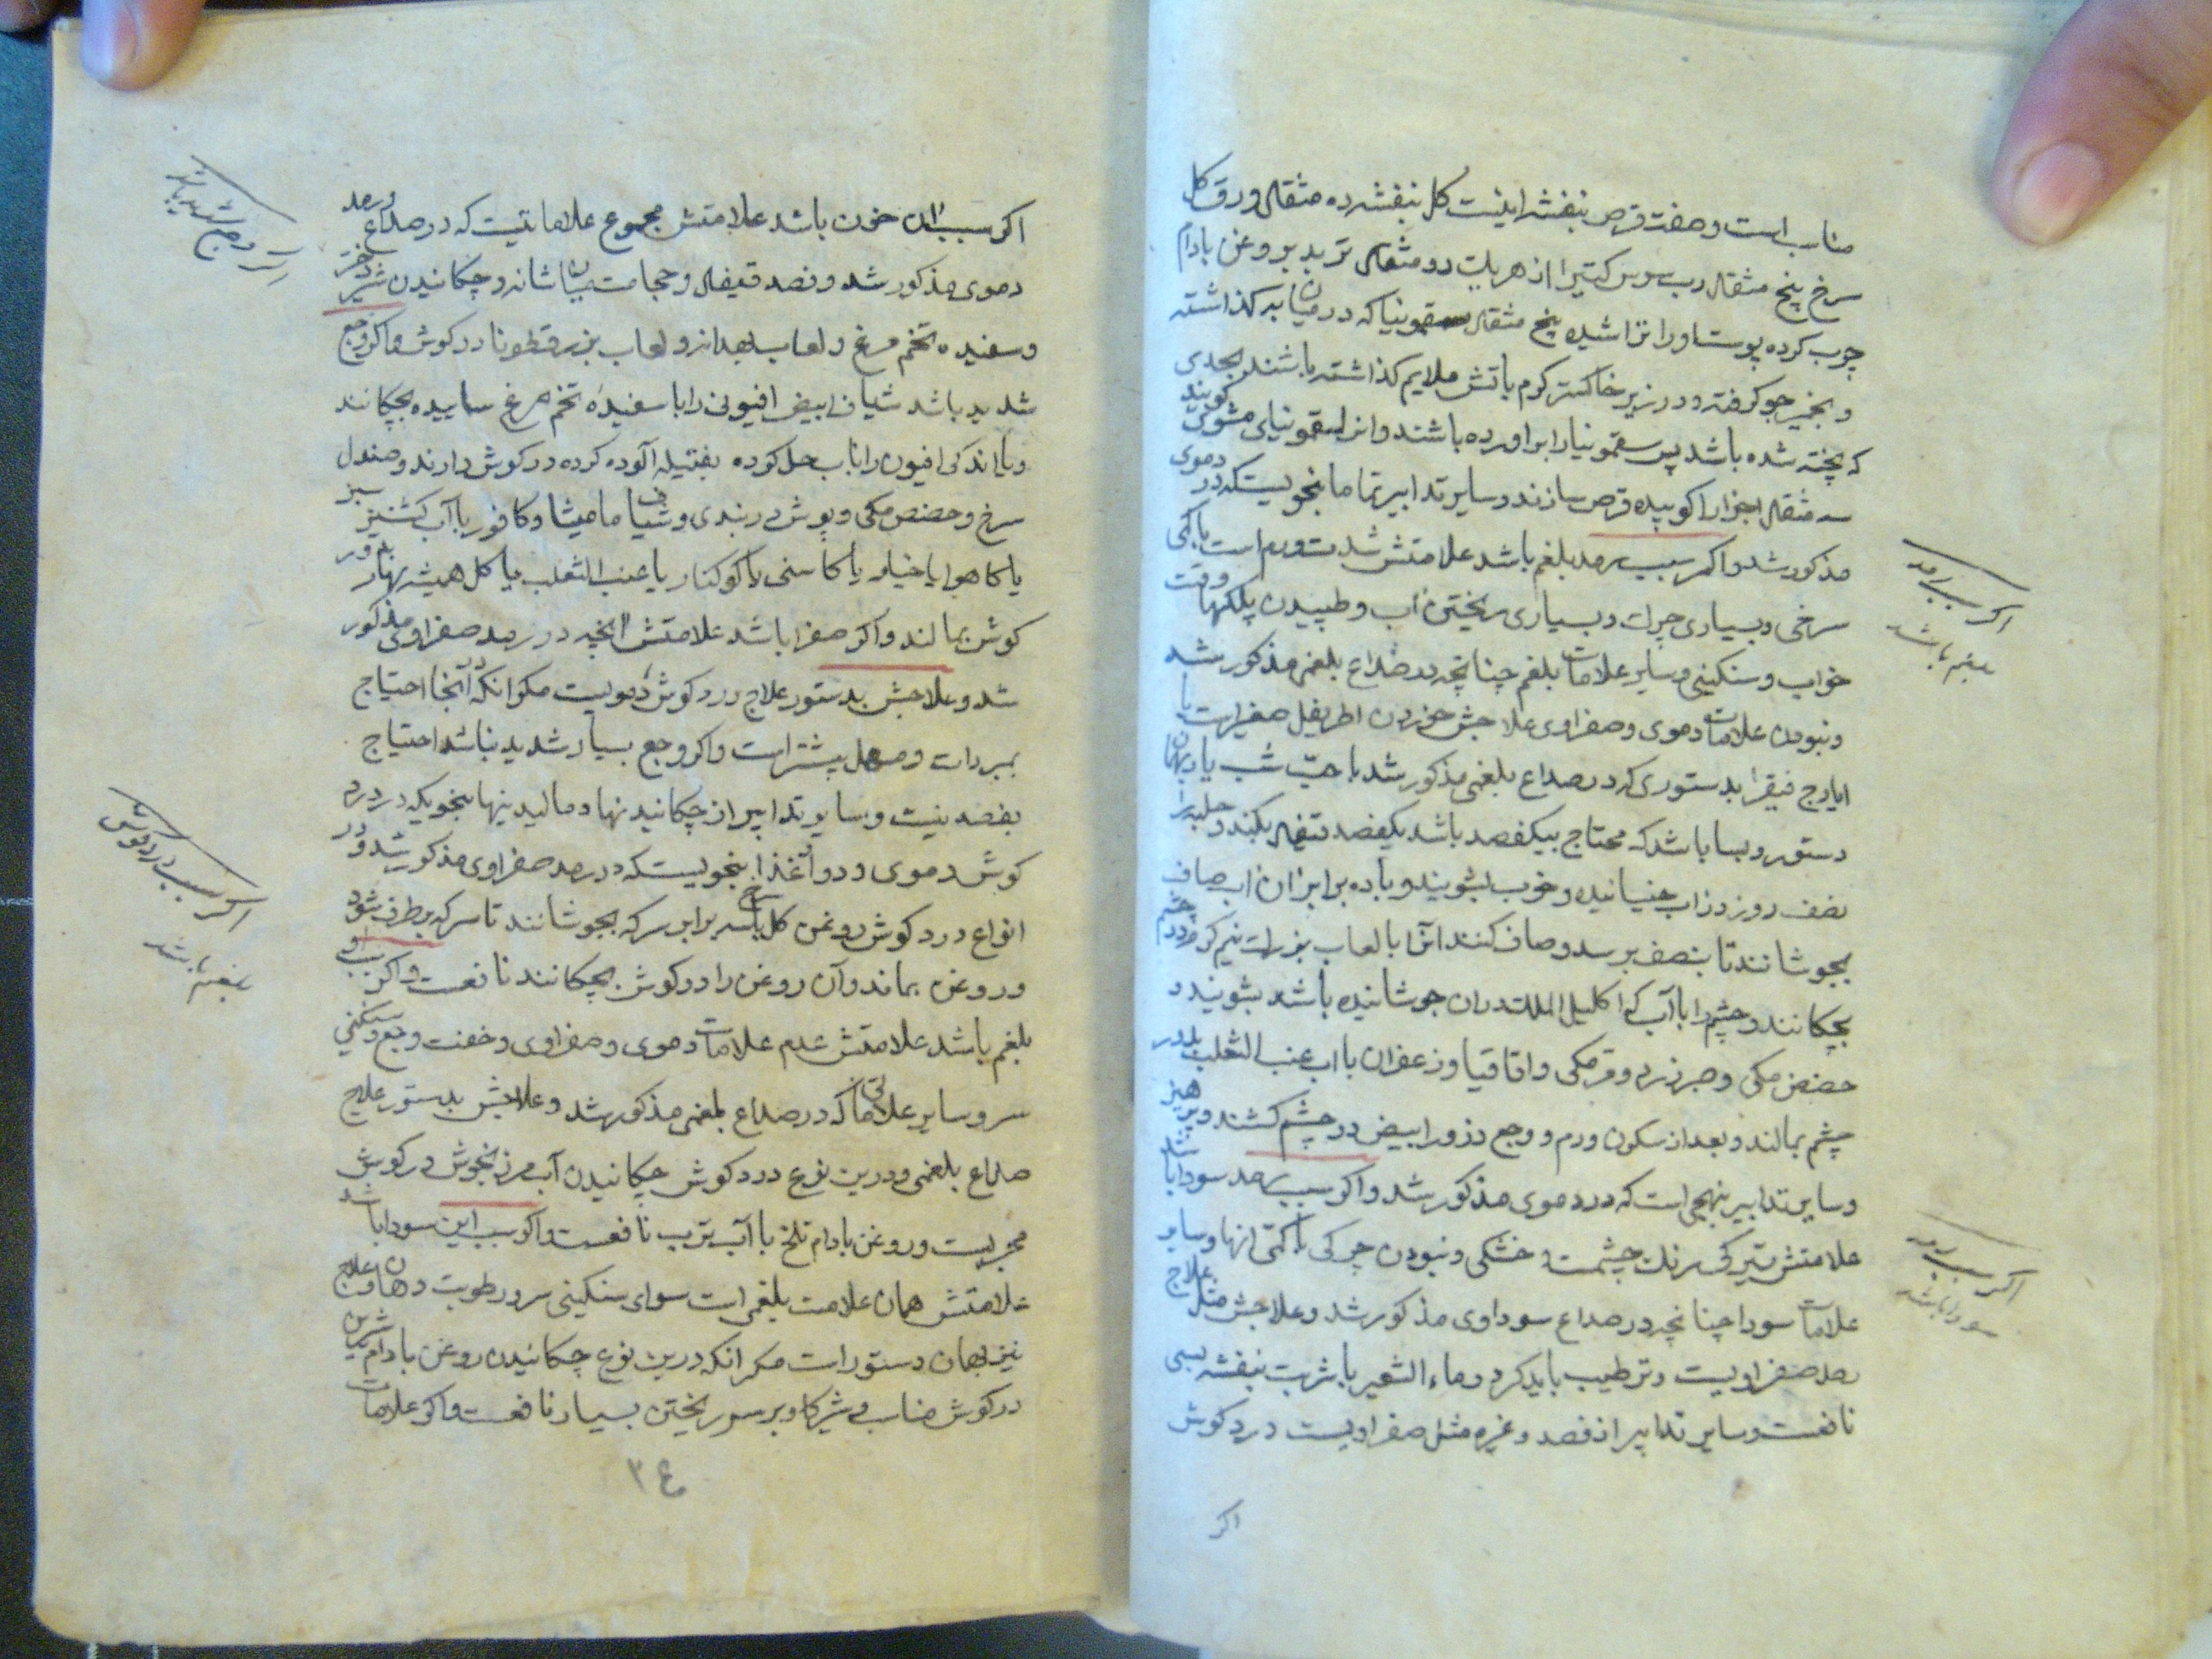 مناسب است و صفت قرص بنفشه اینست کل بنفشه ده مثقال ورق کل
سرخ پنج مثقال رب سوس کتیرا از هریک دو مثقال تربد بروغن بادام
چرب کرده پوست او را تراشیده پنج مثقال سقمونیا که در میان به کذاشته
و بخمیر جو کرفته و در زیر خاکستر کرم یا آتش ملایم کذاشته باشند بحدی
که پخته شده باشد پس سقمونیا را براورده باشند و انرا سقمونیای مشوی کویند
سه مثقال اجزا را کوبیده قرص سازند و سایر تدابیر تماما بنحویست که در دموی
مذکور شد و اکر سبب رمد بلغم باشد علامتش شدت ورم است با کمی
سرخی و بسیاری چرک و بسیاری ریختن اب و طپیدن پلکها وقت
خواب و سنکینی و سایر علامات بلغم چنانچه در صداع بلغمی مذکور شد
و نبودن علامات دموی و صفراوی علاجش خوردن اطریفل صغیر است با
ایارج فیقرا بدستوری که در صداع بلغمی مذکور شد با حب شب یار بهمان
دستور و بسا باشد که محتاج بیکفصد باشد یکفصد قیفال بکند و حلبه را
نصف روز در اب خیسانیده و خوب بشویند و با ده برابر ان اب صاف
بجوشانند تا بنصف برسد و صاف کنند انرا با لعاب بزرک نیم کرم در چشم
بچکانند و چشم را با آب که اکلیل الملک دران جوشانیده باشد بشویند و
حضض مکی و صبر زرد و مر مکی و اقاقیا و زعفران با اب عنب الثعلب بر دور
چشم بمالند و بعد از سکون ورم و وجع ذرور ابیض در چشم کشند و پرهیز
و سایر تدابیر بنهجی است که در دموی مذکور شد و اکر سبب رمد سودا باشد
علامتش تیرکی رنک چشمست و خشکی و نبودن چرکی یا کمی انها و سایر
علامات سودا چنانچه در صداع سوداوی مذکور شد و علاجش مثل علاج
رمد صفراویست و ترطیب باید کرد و ماء الشعیر با شربت بنفشه بسی
نافعست و سایر تدابیر از فصد و غیره مثل صفراویست درد کوش
اکر
اکر سبب رمد
بلغم باشد
اکر سبب رمد
سودا باشد
اکر سبب ان خون باشد علامتش مجموع علاماتیست که در صداع و رمد
دموی مذکور شد و فصد قیفال و حجامت میان شانه و چکانیدن شیر دختر
و سفیده تخم مرغ و لعاب بهدانه و لعاب بزرقطونا در کوش و اکر وجع
شدید باشد شیاف ابیض افیونی را با سفیده تخم مرغ ساییده بچکانند
و یا اندکی افیون را با آب حل کرده بفتیله آلوده کرده در کوش دارند و صندل
سرخ و حضض مکی و پوش دربندی و شیاف مامیثا و کافور با آب کشنیز سبز
یا کاهو یا خیار یا کاسنی یا کوکنار یا عنب الثعلب یا کل همیشه بهار بر دور
کوش بمالند و اکر صفرا باشد علامتش انچه در رمد صفراوی مذکور
شد و علاجش بدستور علاج درد کوش دمویست مکر انکه آنجا احتیاج
بمبردات و مسهل بیشتر است و اکر وجع بسیار شدید نباشد احتیاج
بفصد نیست و سایر تدابیر از چکانیدنها و مالیدنیها بنحویکه در درد
کوش دموی و دوا غذا بنحویست که در رمد صفراوی مذکور شد و در
انواع درد کوش روغن کل با سه برابر سرکه بجوشانند تا سرکه برطرف شود
و روغن بماند و آن روغن را در کوش بچکانند نافعست و اکر سبب او
بلغم باشد علامتش عدم علامات دموی و صفراوی و خفت وجع و سنکینی
سر و سایر علاماتی که در صداع بلغمی مذکور شد و علاجش بدستور علاج
صداع بلغمی و درین نوع درد کوش چکانیدن آب مرزنجوش در کوش
مجربیست و روغن بادام تلخ با آب ترب نافعست و اکر سبب این سودا باشد
علامتش همان علامت بلغمی است سوای سنکینی سر و رطوبت دهان و علاج
نیز بهمان دستور است مکر انکه درین نوع چکانیدن روغن بادام شیرین
در کوش مناسب و شیر کاو بر سر ریختن بسیار نافعست و اکر علامات
۳٤
اکر وجع شدید باشد
اکر سبب درد کوش
بلغم باشد